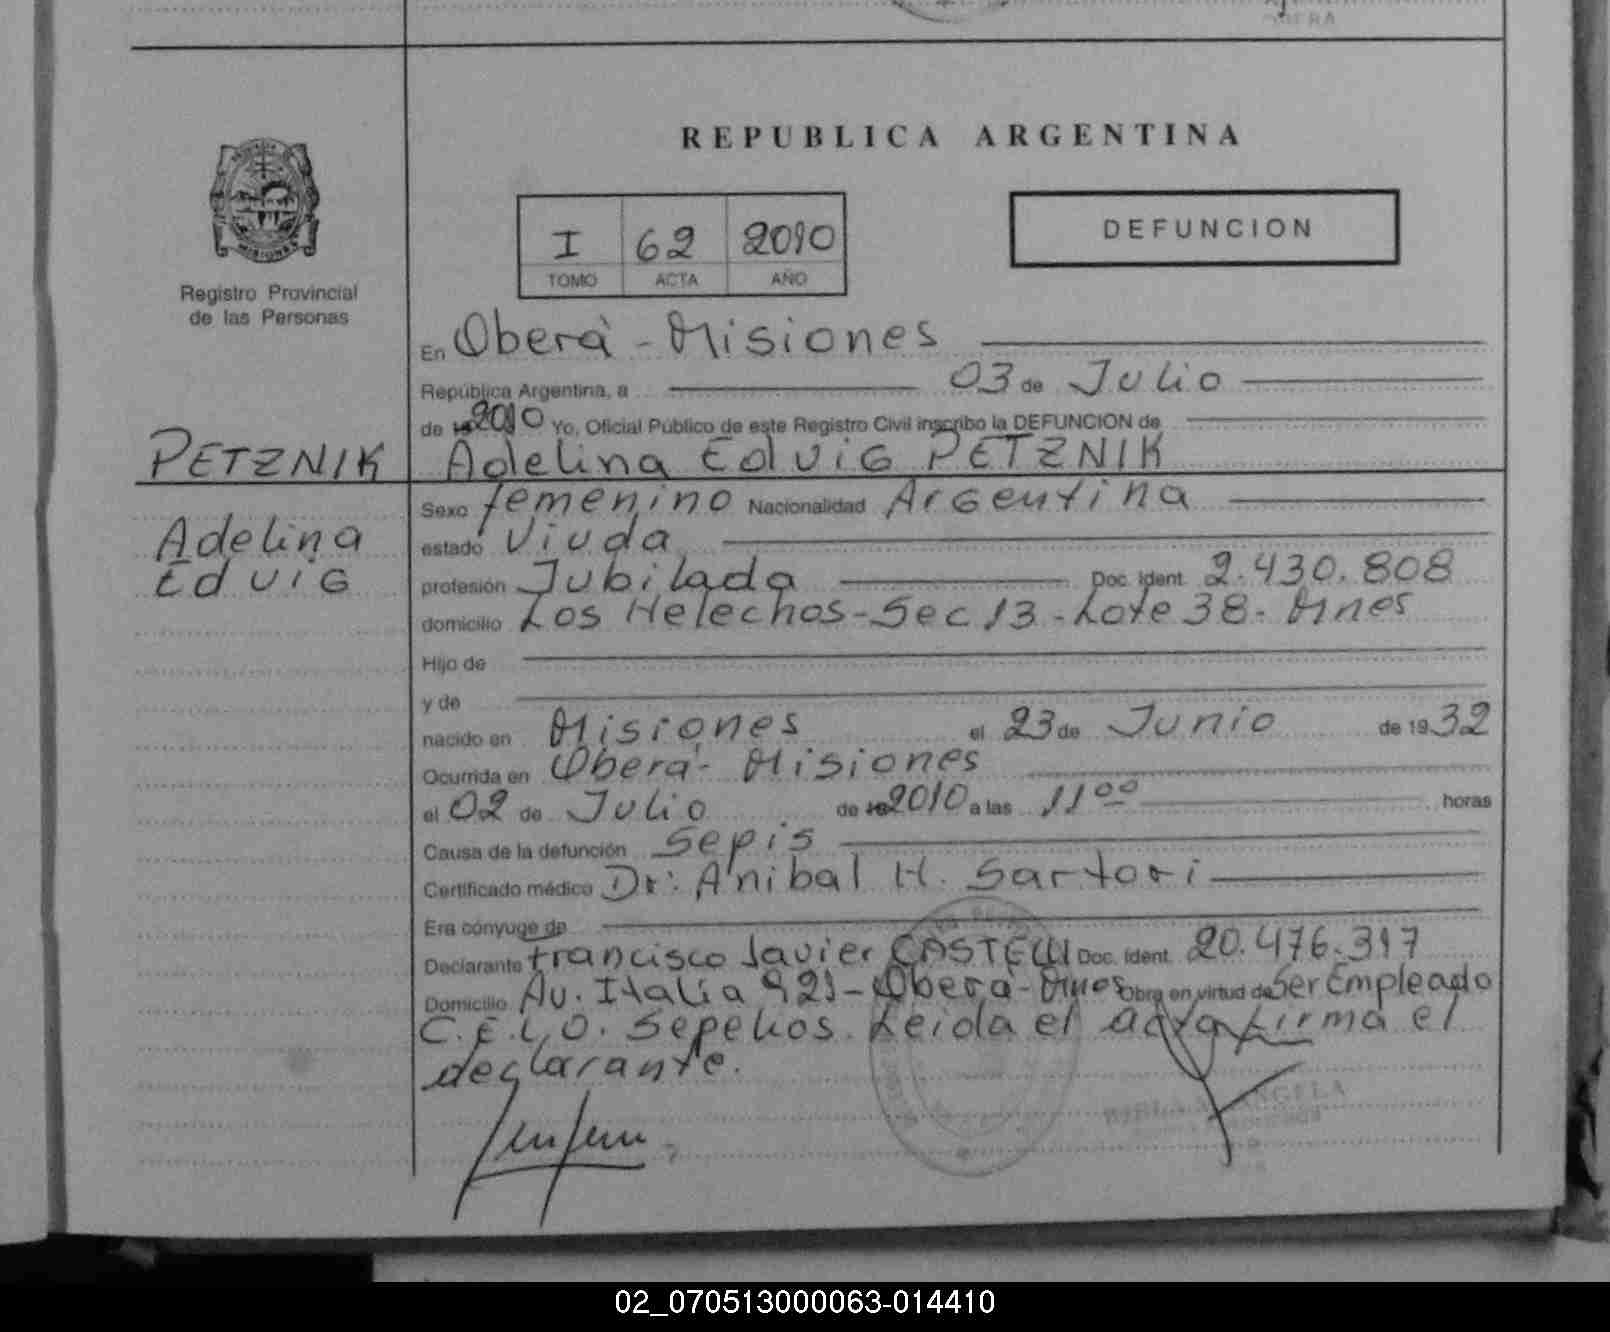 REPUBLICA ARGENTINA
I 62 2010
TOMO ACTA AÑO
DEFUNCION
MISIONES
Registro Provincial
de las Personas
En Oberá - Misiones
República Argentina, a 03 de Julio
de 2010 Yo, Oficial Público de este Registro Civil inscribo la DEFUNCION de
PETZNIK Adelina Edvig PETZNIK
Adelina
Edvig
Sexo femenino Nacionalidad Argentina
estado Viuda
profesión Jubilada Doc. Ident. 2.430.808
domicilio Los Helechos - Sec 13 - Lote 38 - Mnes
Hijo de
y de
nacido en Misiones el 23 de Junio de 1932
Ocurrida en Oberá - Misiones
el 02 de Julio de 2010 a las 11 00 horas
Causa de la defunción Sepis
Certificado médico Dr: Anibal H. Sartori
Era cónyuge de
Declarante Francisco Javier CASTELLI Doc. Ident. 20.476.317
Domicilio Av. Italia 921 - Oberá - Mnes Obra en virtud de Ser Empleado
C.E.L.O. Sepelios. Leida el acta firma el
declarante.
02_070513000063-014410